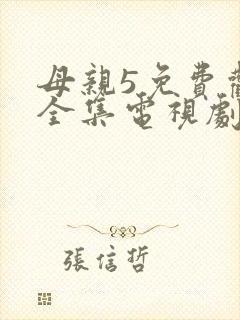 母親5免費
全集電視劇
張信哲